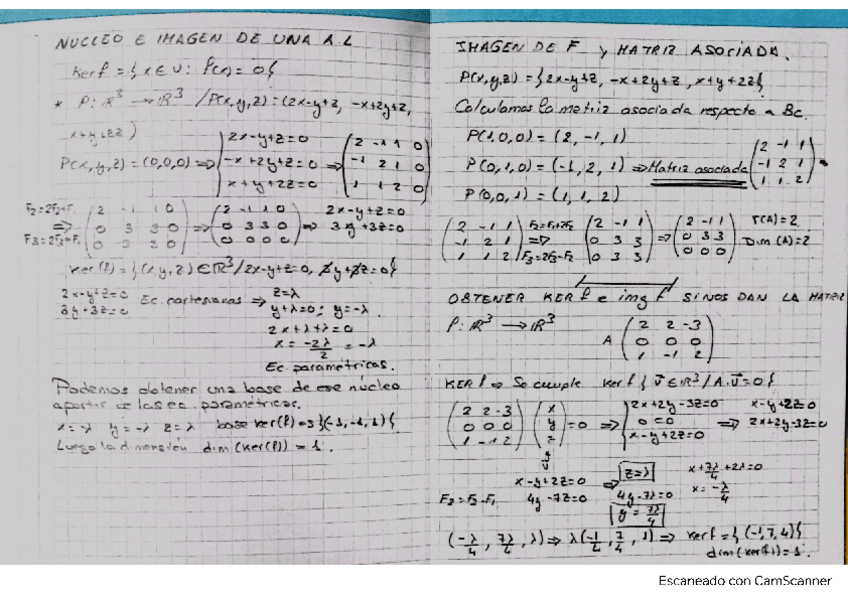 NUCLEO E IMAGEN DE UNA A.L
Ker f = {x ∈ U: f(x) = 0}
* f: ℝ³ → ℝ³ / f(x,y,z) = (2x-y+z, -x+2y+z,
x+y+2z)
f(x,y,z) = (0,0,0) ⇒ { 2x-y+z=0 ; -x+2y+z=0 ; x+y+2z=0 ⇒ ( 2 -1 1 0 ; -1 2 1 0 ; 1 1 2 0 )
F2=2F2+F1 F3=2F3-F1 ⇒ ( 2 -1 1 0 ; 0 3 3 0 ; 0 3 3 0 ) ⇒ ( 2 -1 1 0 ; 0 3 3 0 ; 0 0 0 0 ) ⇒ 2x-y+z=0 3y+3z=0
Ker(f) = {(x,y,z) ∈ ℝ³ / 2x-y+z=0, 3y+3z=0}
2x-y+z=0
3y+3z=0
Ec. cartesianas ⇒ z=λ
y+λ=0; y=-λ
2x+λ+λ=0
x = -2λ/2 = -λ
Ec. paramétricas.
Podemos obtener una base de ese núcleo
apartir de las ec. paramétricas.
x=-λ y=-λ z=λ base Ker(f) = {(-1,-1,1)}
Luego la dimensión dim(Ker(f)) = 1.
IMAGEN DE F y MATRIZ ASOCIADA.
f(x,y,z) = {2x-y+z, -x+2y+z, x+y+2z}
Calculamos la matriz asociada respecto a Bc.
f(1,0,0) = (2,-1,1)
f(0,1,0) = (-1,2,1) ⇒ Matriz asociada ( 2 -1 1 ; -1 2 1 ; 1 1 2 )
f(0,0,1) = (1,1,2)
( 2 -1 1 ; -1 2 1 ; 1 1 2 ) F2=F1+2F2 ⇒ F3=2F3-F2 ( 2 -1 1 ; 0 3 3 ; 0 3 3 ) ⇒ ( 2 -1 1 ; 0 3 3 ; 0 0 0 ) r(A)=2 Dim(A)=2
OBTENER KER f e img f SI NOS DAN LA MATRIZ
f: ℝ³ → ℝ³
A ( 2 2 -3 ; 0 0 0 ; 1 -1 2 )
KER f ⇒ Se cumple Ker f {v ∈ ℝ³ / A·v=0}
( 2 2 -3 ; 0 0 0 ; 1 -1 2 ) ( x ; y ; z ) = 0 ⇒ { 2x+2y-3z=0 ; 0=0 ; x-y+2z=0 ⇒ x-y+2z=0 2x+2y-3z=0
v
x-y+2z=0 ⇒ z=λ x+7λ/4+2λ=0
4y-7z=0 4y-7λ=0 x=-λ/4
y=7λ/4
(-λ/4, 7λ/4, λ) ⇒ λ(-1/4, 7/4, 1) ⇒ Ker f = {(-1,7,4)}
dim(Ker f) = 1.
Escaneado con CamScanner